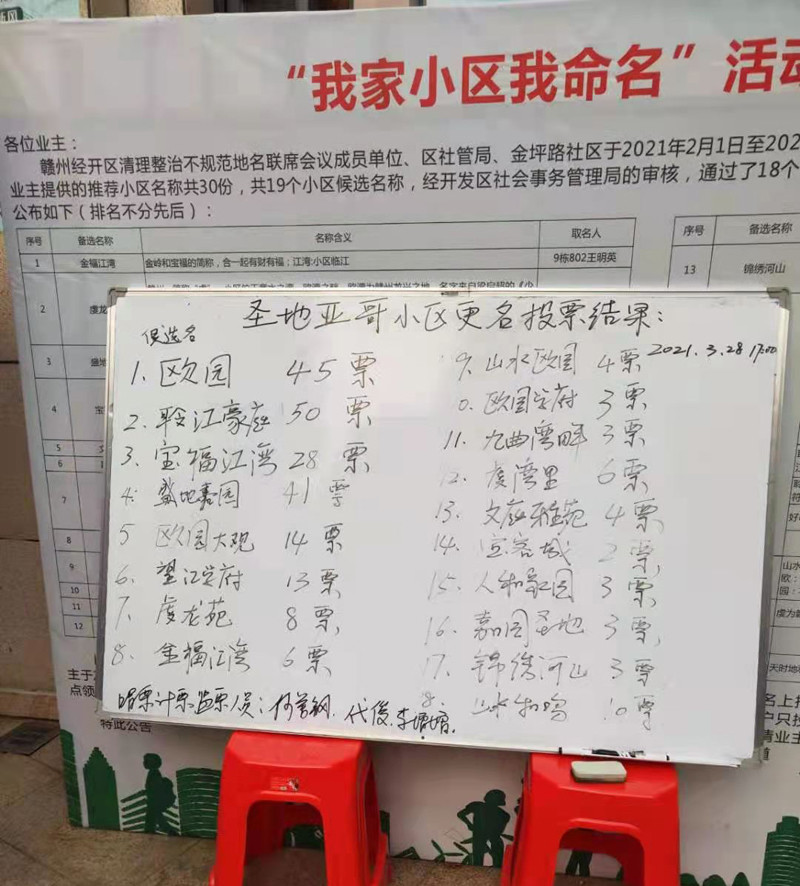 “我家小区我命名”活动
各位业主：
赣州经开区清理整治不规范地名联席会议成员单位、区社管局、金坪路社区于2021年2月1日至202
业主提供的推荐小区名称共30份，共19个小区候选名称，经开发区社会事务管理局的审核，通过了18个
公布如下（排名不分先后）：
序号 备选名称 名称含义 取名人
1 金福江湾 金岭和宝福的简称，合一起有财有福；江湾:小区临江 9栋802王明英
2 虔龙
3 盛地
4 宝
5
6
7
8
9
10
11
12
序号 备选名称
13 锦绣河山
圣地亚哥小区更名投票结果：
2021.3.28 17:00
候选名
1. 欧园 45票
2. 聆江豪庭 50票
3. 宝福江湾 28票
4. 盛地嘉园 41票
5 欧园大观 14票
6. 望江学府 13票
7. 虔龙苑 8票
8. 金福江湾 6票
9. 山水欧园 4票
0. 欧园学府 3票
11. 九曲湾畔 3票
12. 虔湾里 6票
13. 文庭雅苑 4票
14. 宜客城 2票
15. 人和家园 3票
16. 嘉园圣地 3票
17. 锦绣河山 3票
8. 10票
唱票计票监票人员：代俊
特此公告